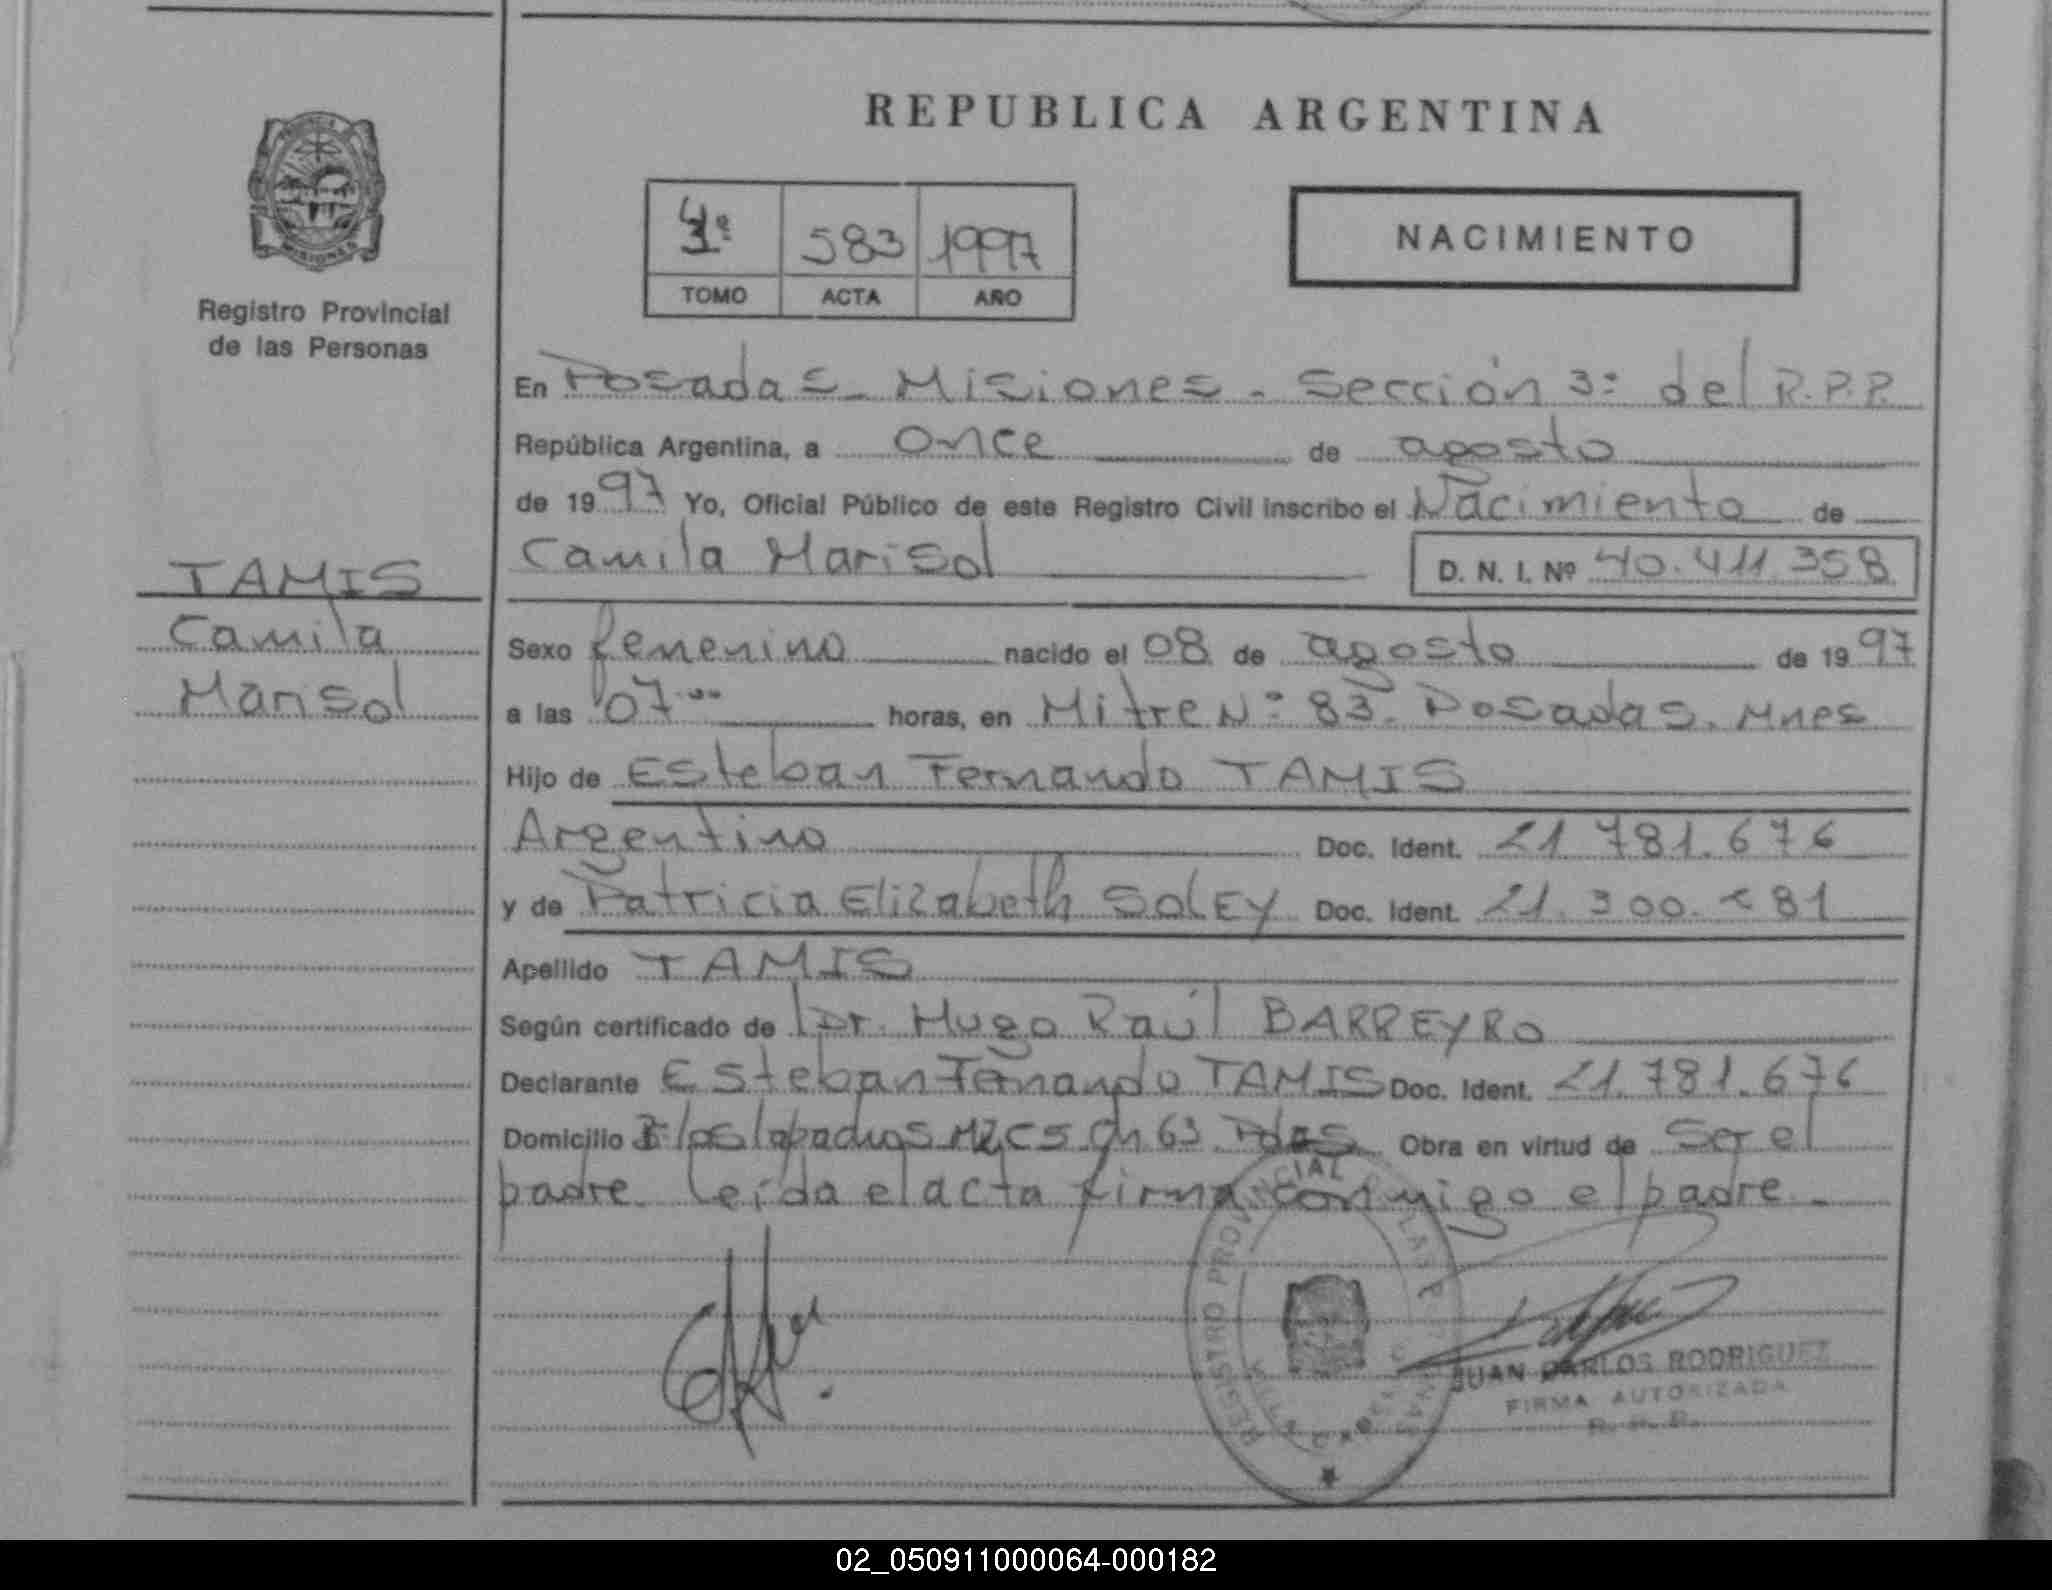 REPUBLICA ARGENTINA
PROVINCIA
MISIONES
Registro Provincial
de las Personas
583 1997
TOMO ACTA AÑO
NACIMIENTO
En Posadas - Misiones - Sección 3º del R.P.P.
República Argentina, a once de agosto
de 1997 Yo, Oficial Público de este Registro Civil inscribo el Nacimiento de
Camila Marisol D. N. I. Nº 40.411.358
TAMIS
Camila
Marisol
Sexo femenino nacido el 08 de agosto de 1997
a las 07.00 horas, en Mitre Nº 83. Posadas. Mnes
Hijo de Esteban Fernando TAMIS
Argentino Doc. Ident. 21.781.676
y de Patricia Elizabeth SOLEY Doc. Ident. 21.300.281
Apellido TAMIS
Según certificado de Dr. Hugo Raúl BARREYRO
Declarante Esteban Fernando TAMIS Doc. Ident. 21.781.676
Domicilio los lapachos MZ C5 Ch 63 Pdas Obra en virtud de Ser el
padre. Leída el acta firma conmigo el padre.
REGISTRO PROVINCIAL DE LAS PERSONAS
JUAN CARLOS RODRIGUEZ
FIRMA AUTORIZADA
R. P. P.
02_050911000064-000182